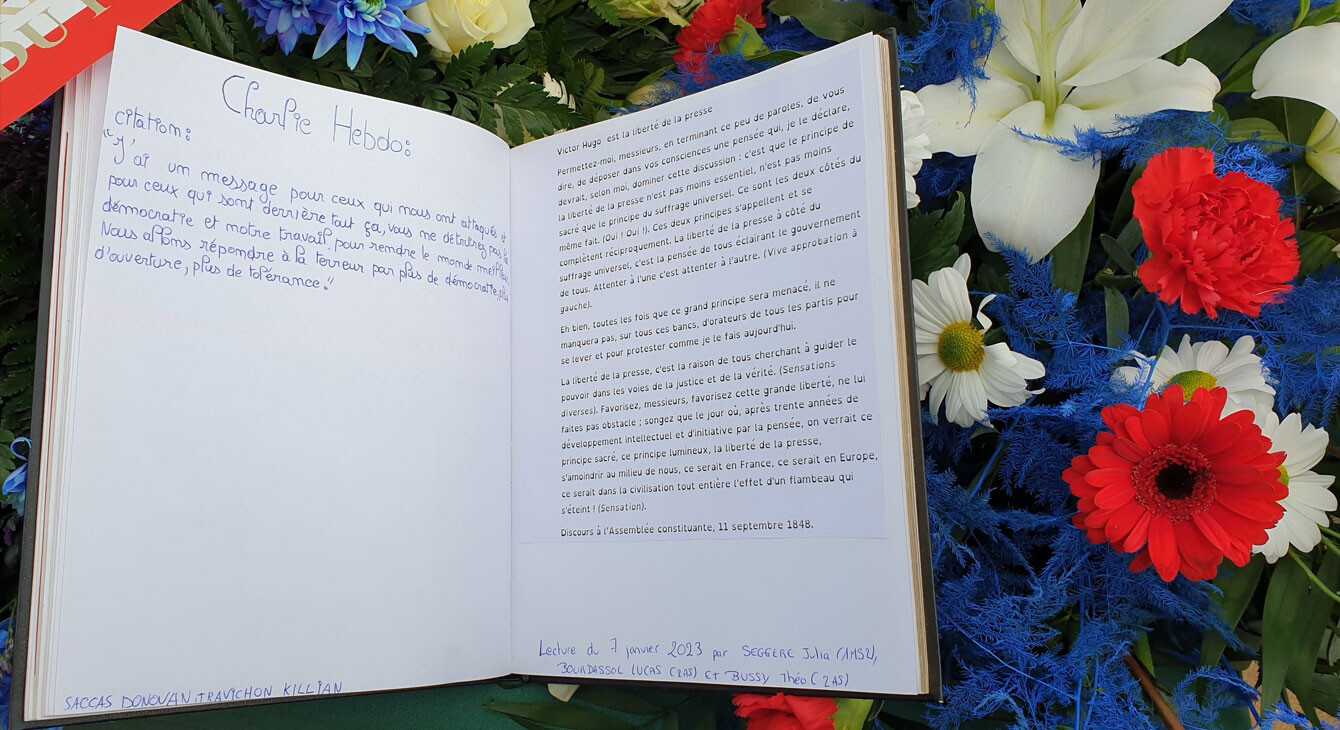 DU
Charlie Hebdo:
citation:
"J'ai un message pour ceux qui nous ont attaqués et
pour ceux qui sont derrière tout ça, vous me détruirez pas la
démocratie et notre travail pour rendre le monde meilleur,
Nous allons répondre à la terreur par plus de démocratie, plus
d'ouverture, plus de tolérance."
SACCAS DONOVAN, TRAVICHON KILLIAN
Victor Hugo est la liberté de la presse
Permettez-moi, messieurs, en terminant ce peu de paroles, de vous
dire, de déposer dans vos consciences une pensée qui, je le déclare,
devrait, selon moi, dominer cette discussion : c'est que le principe de
la liberté de la presse n'est pas moins essentiel, n'est pas moins
sacré que le principe du suffrage universel. Ce sont les deux côtés du
même fait. (Oui ! Oui !). Ces deux principes s'appellent et se
complètent réciproquement. La liberté de la presse à côté du
suffrage universel, c'est la pensée de tous éclairant le gouvernement
de tous. Attenter à l'une c'est attenter à l'autre. (Vive approbation à
gauche).
Eh bien, toutes les fois que ce grand principe sera menacé, il ne
manquera pas, sur tous ces bancs, d'orateurs de tous les partis pour
se lever et pour protester comme je le fais aujourd'hui.
La liberté de la presse, c'est la raison de tous cherchant à guider le
pouvoir dans les voies de la justice et de la vérité. (Sensations
diverses). Favorisez, messieurs, favorisez cette grande liberté, ne lui
faites pas obstacle ; songez que le jour où, après trente années de
développement intellectuel et d'initiative par la pensée, on verrait ce
principe sacré, ce principe lumineux, la liberté de la presse,
s'amoindrir au milieu de nous, ce serait en France, ce serait en Europe,
ce serait dans la civilisation tout entière l'effet d'un flambeau qui
s'éteint ! (Sensation).
Discours à l'Assemblée constituante, 11 septembre 1848.
Lecture du 7 janvier 2023 par SEGGERE Julia (1MS2),
BOURDASSOL LUCAS (2AS) ET BUSSY Théo (2AS)